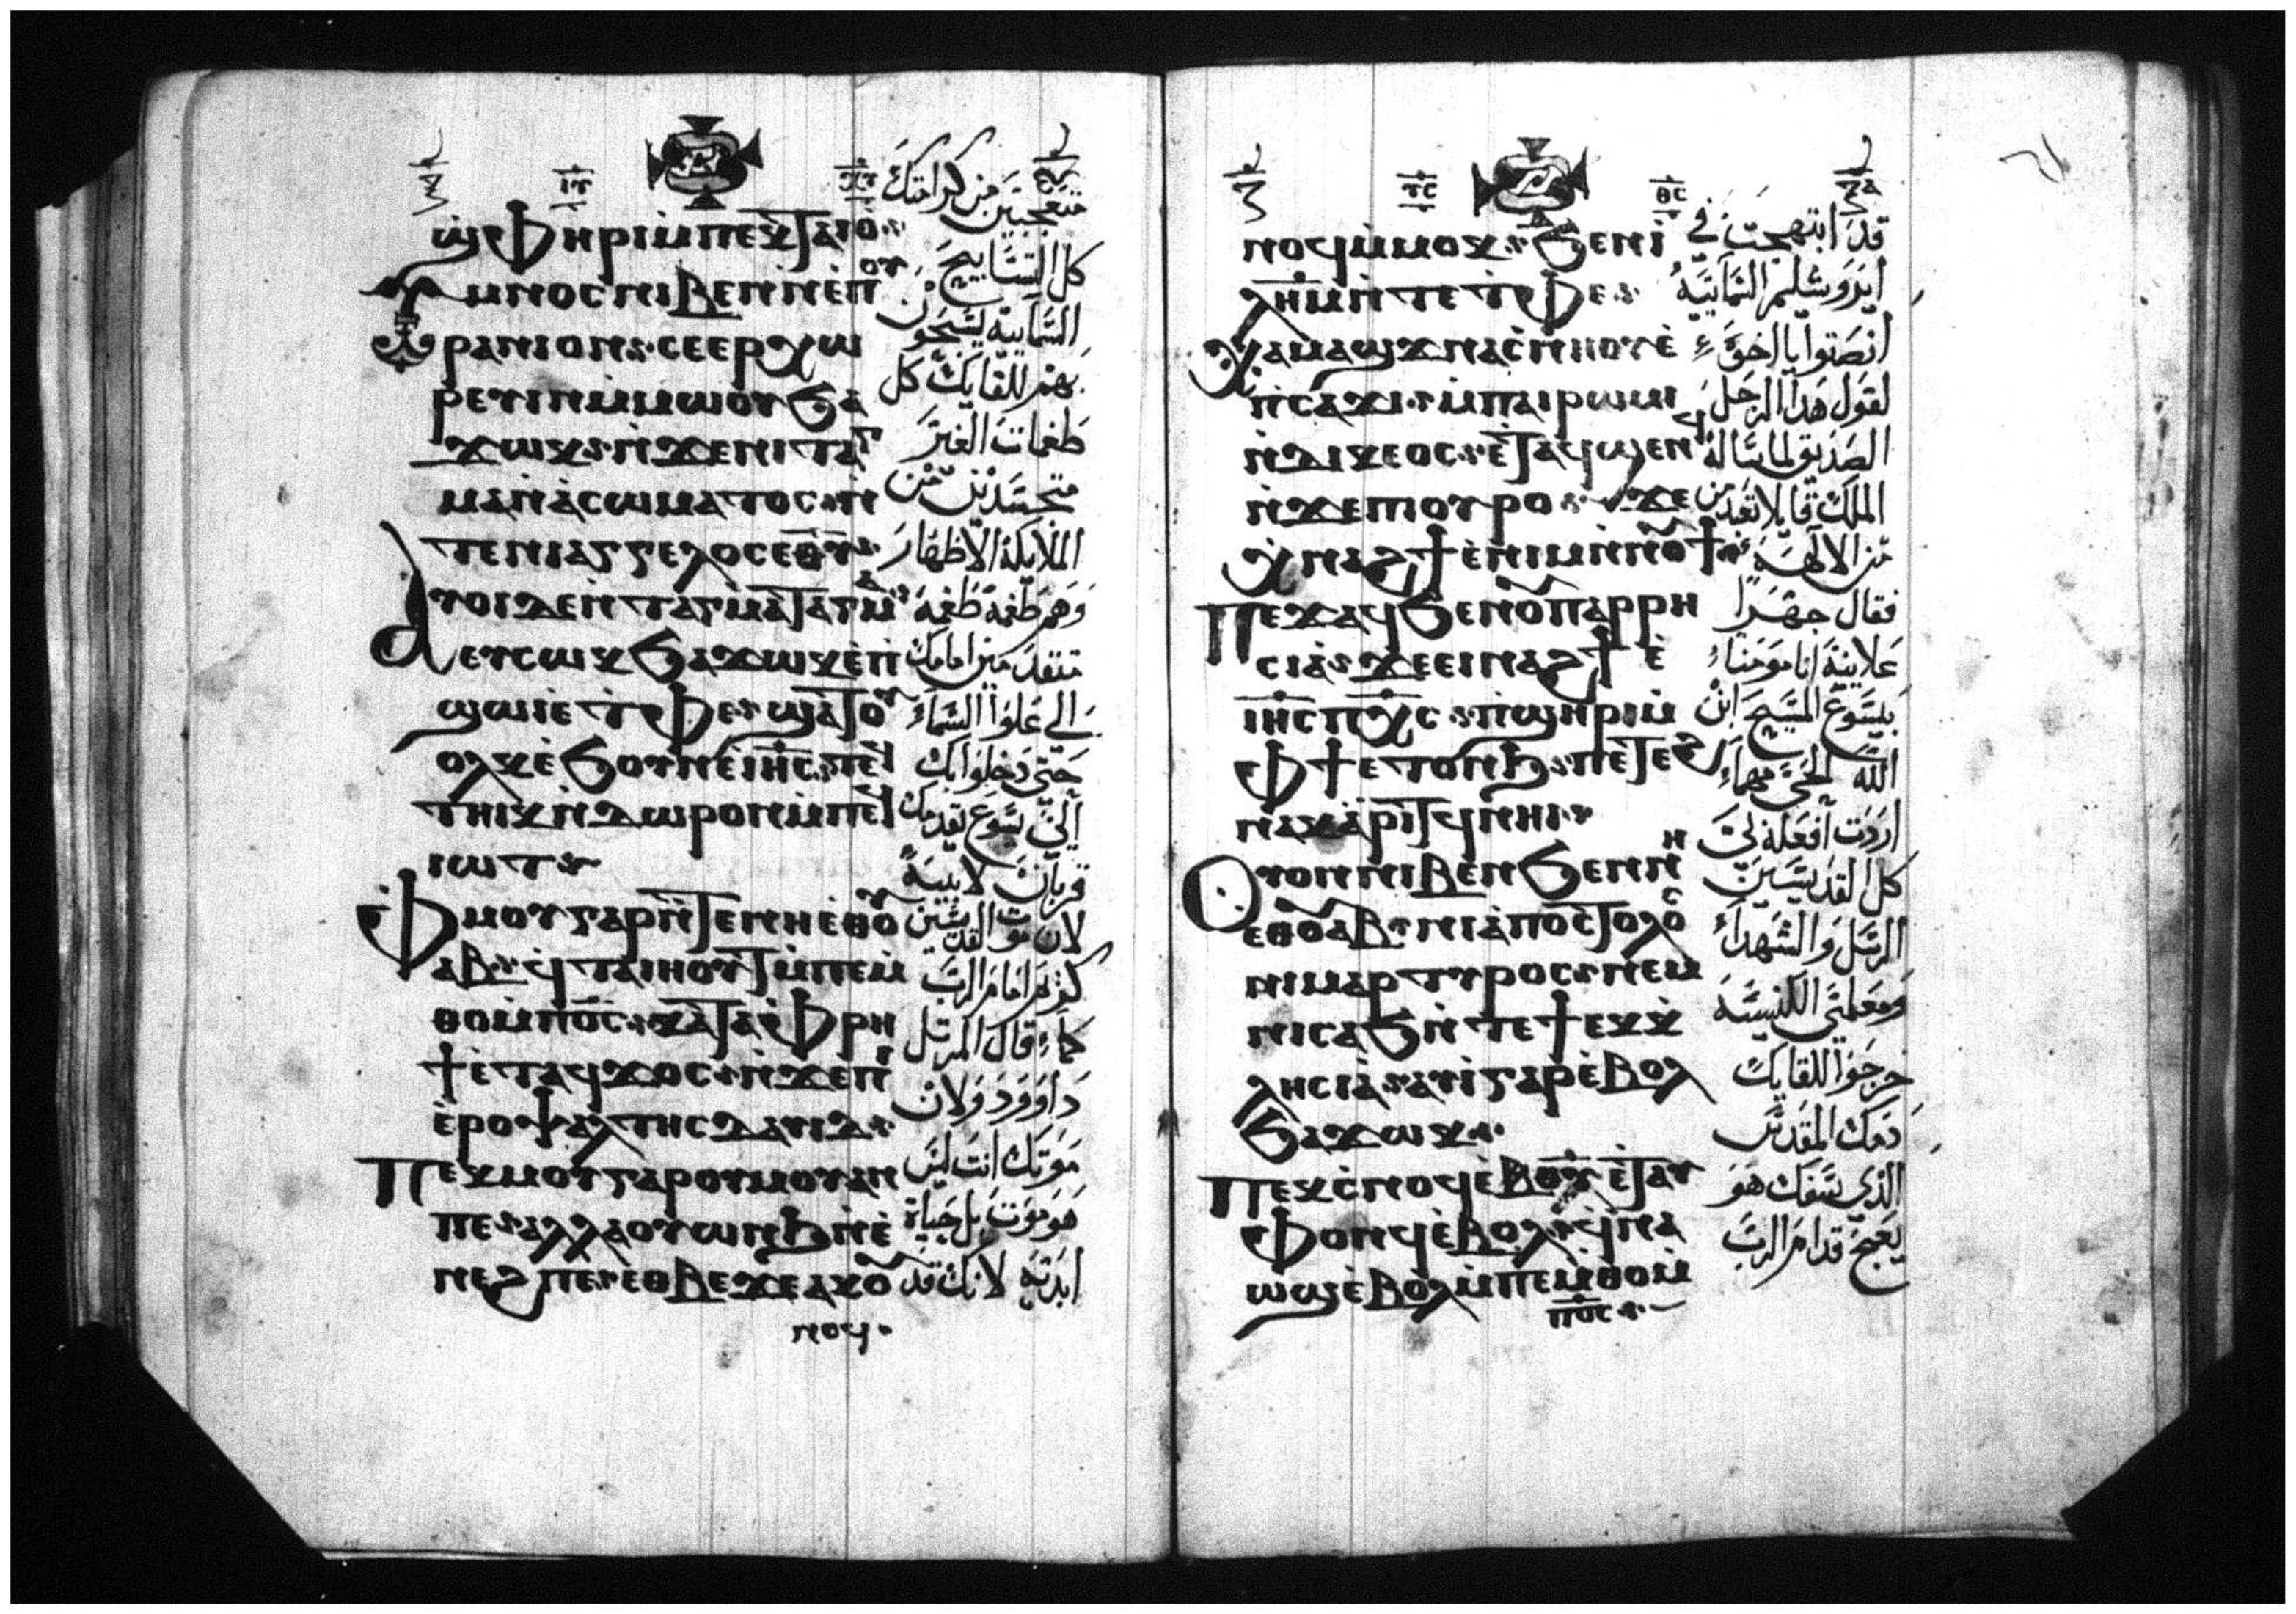 ⲓⲥ ⲭⲥ
ϣⲫⲏⲣⲓ ⲙⲡⲉⲕⲧⲁⲓⲟ
ⲩⲙⲛⲟⲥ ⲛⲓⲃⲉⲛ ⲛⲉⲡⲟⲩ
ⲣⲁⲛⲓⲟⲛ ⲥⲉⲉⲣⲭⲱ
ⲣⲉⲩⲓⲛ ⲙⲙⲱⲟⲩ ϧⲁ
ϫⲱⲕ ⲛϫⲉⲛⲓⲧⲁⲅ
ⲙⲁ ⲛⲁⲥⲱⲙⲁⲧⲟⲥ ⲛ
ⲧⲉⲛⲓⲁⲅⲅⲉⲗⲟⲥ ⲉⲑⲩ
ⲉⲩⲥⲱⲕ ϧⲁϫⲱⲕ ⲉⲡ
ϣⲱⲓ ⲉⲧⲫⲉ ϣⲁⲧⲟⲩ
ⲟⲗⲕ ⲉϧⲟⲩⲛ ⲉⲓⲏⲥ ⲛⲥⲉ
ⲧⲏⲓⲕ ⲛⲇⲱⲣⲟⲛ ⲙⲡⲉϥ
ⲓⲱⲧ
ⲫⲙⲟⲩ ⲅⲁⲣ ⲛⲧⲉⲛⲏⲉⲑⲟⲩ
ⲁⲃ ϥⲧⲁⲓⲏⲟⲩⲧ ⲙⲡⲉⲙ
ⲑⲟ ⲙⲡⲟⲥ ⲕⲁⲧⲁ ⲫⲣⲏ
ϯ ⲉⲧⲁϥϫⲟⲥ ⲛϫⲉⲡⲓ
ⲉⲣⲟⲯⲁⲗⲧⲏⲥ ⲇⲁⲩⲓⲇ
ⲡⲉⲕⲙⲟⲩ ⲅⲁⲣ ⲟⲩⲙⲟⲩ ⲁⲛ
ⲡⲉ ⲁⲗⲗⲁ ⲟⲩⲱⲛϧ ⲛⲉ
ⲛⲉϩ ⲡⲉ ⲉⲑⲃⲉϫⲉ ⲁⲕⲟⲩ
ⲛⲟϥ
كل التسابيح
السمايية يسجون
الملايكة الاطهار
وهم طغمة طغمة
حتى دخلوا بك
الى يسوع
كريم امام الرب
كما قال المرتل
داوود ولان
موتك انت ليس
هو موت بل حياة
ابدية لانك قد
ⲩⲥ ⲑⲥ
ⲛⲟϥ ⲙⲙⲟⲕ ϧⲉⲛ ⲓ
ⲗⲏⲙ ⲛⲧⲉⲧⲫⲉ
ⲭⲁⲙⲁϣϫ ⲛⲁⲥⲛⲏⲟⲩ ⲉ
ⲡⲥⲁϫⲓ ⲙⲡⲁⲓⲣⲱⲙⲓ
ⲛⲇⲓⲕⲉⲟⲥ ⲉⲧⲁϥϣⲉⲛϥ
ⲛϫⲉⲡⲟⲩⲣⲟ ϫⲉ
ⲭⲛⲁϩϯ ⲉⲛⲓⲙ ⲛⲛⲟⲩϯ
ⲡⲉϫⲁϥ ϧⲉⲛⲟⲩⲡⲁⲣⲣⲏ
ⲥⲓⲁ ϫⲉ ⲉⲓⲛⲁϩϯ ⲉ
ⲓⲏⲥ ⲡⲭⲥ ⲡϣⲏⲣⲓ ⲙ
ⲫϯ ⲉⲧⲟⲛϧ ⲡⲉⲧⲉϩ
ⲛⲁⲕ ⲁⲣⲓⲧϥ ⲛⲏⲓ
ⲟⲩⲟⲛ ⲛⲓⲃⲉⲛ ϧⲉⲛ ⲛⲏ
ⲉⲑⲟⲩⲁⲃ ⲛⲓⲁⲡⲟⲥⲧⲟⲗⲟⲥ
ⲛⲓⲙⲁⲣⲧⲩⲣⲟⲥ ⲛⲉⲙ
ⲛⲓⲥⲁϧ ⲛⲧⲉϯⲉⲕⲕ
ⲗⲏⲥⲓⲁ ⲁⲩⲓ ⲅⲁⲣ ⲉⲃⲟⲗ
ϧⲁϫⲱⲕ
ⲡⲉⲕⲥⲛⲟϥ ⲉⲑⲟⲩ ⲉⲧⲁⲩ
ⲫⲟⲛϥ ⲉⲃⲟⲗ ϥⲛⲁ
ⲱϣ ⲉⲃⲟⲗ ⲙⲡⲉⲙⲑⲟ ⲙ
ⲡⲟⲥ
قد ابتهجت في
ايروشليم السمايية
انصتوا يا اخوة
لقول هذا الرجل
الصديق لما ساله
الملك قايلا تعبد من
من الالهة
فقال جهرا
علانية انا مومنا
بيسوع المسيح ابن
الله الحي مهما
اردت افعله لي
كل القديسين
الرسل والشهدا
ومعلمي الكنيسة
خرجوا للقايك
دمك المقدس
الذي سفك هو
يعج قدام الرب